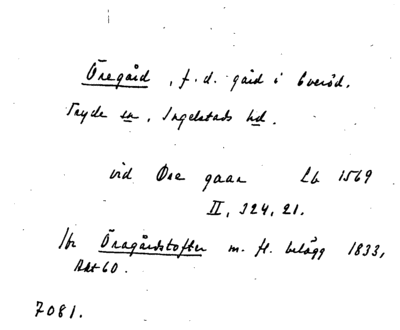 Öregård, f.d. gård i Everöd.
Tryde sn, Ingelstads hd.
vid Øre gaar Lb 1569
II, 324, 21.
Jfr Öragårdstofter m. fl. belägg 1833,
Akt 60.
7081.